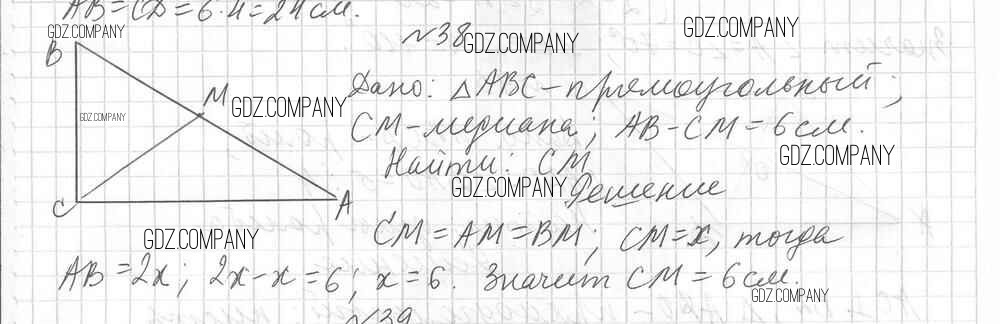 AB = CD = 6·4 = 24 см.
№38
Дано: △ABC – прямоугольный;
CM – медиана; AB - CM = 6 см.
Найти: CM
Решение
CM = AM = BM; CM = x, тогда
AB = 2x; 2x - x = 6; x = 6. Значит CM = 6 см.
№39
B
M
C
A
GDZ.COMPANY
GDZ.COMPANY
GDZ.COMPANY
GDZ.COMPANY
GDZ.COMPANY
GDZ.COMPANY
GDZ.COMPANY
GDZ.COMPANY
GDZ.COMPANY